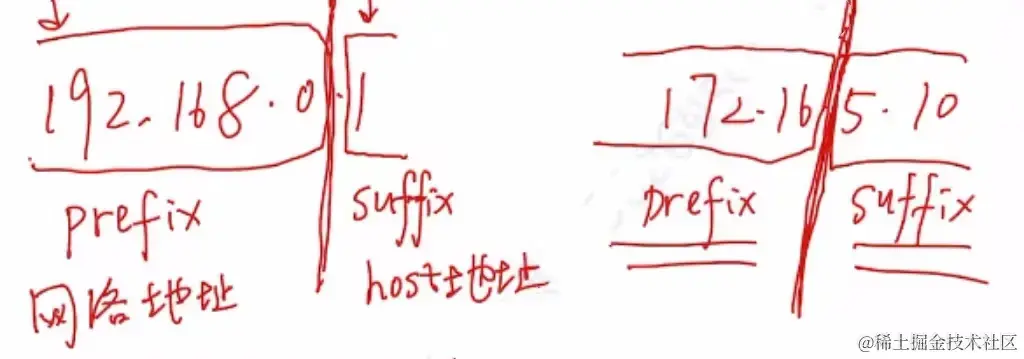 192.168.0.1
prefix suffix
网络地址 host地址
172.16.5.10
Prefix suffix
@稀土掘金技术社区